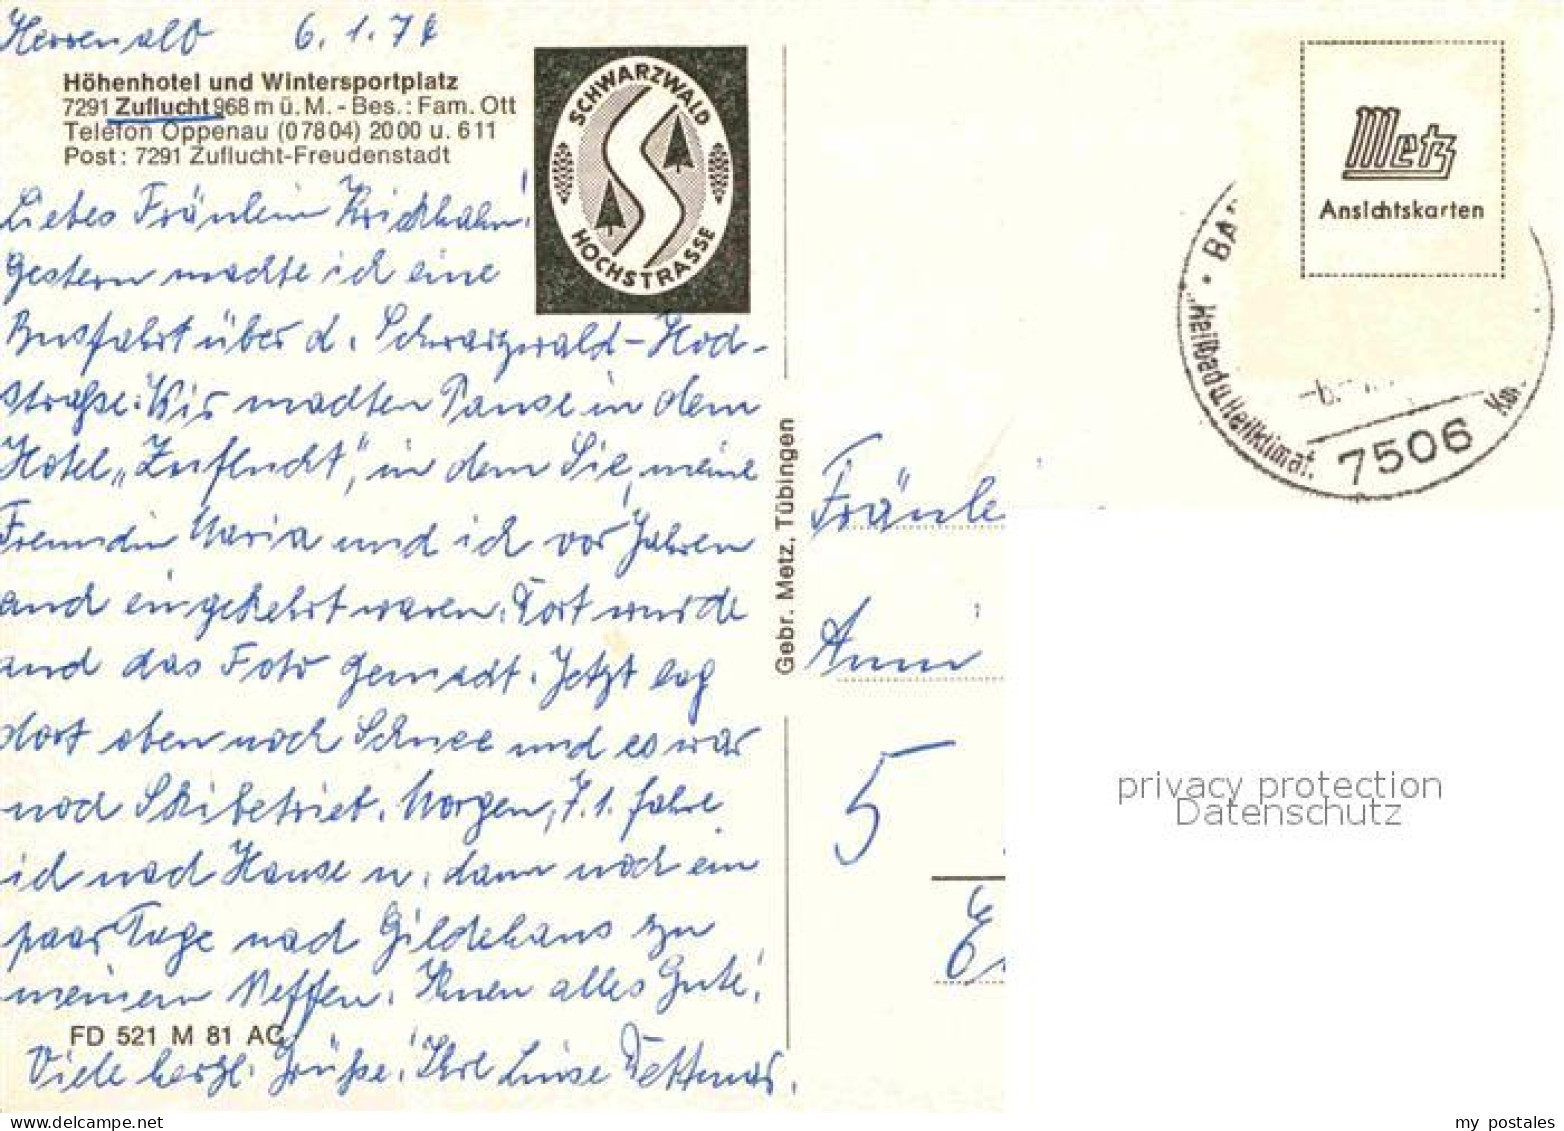 Herrenalb 6.1.78
Höhenhotel und Wintersportplatz
7291 Zuflucht 968 m ü. M. - Bes.: Fam. Ott
Telefon Oppenau (07804) 2000 u. 611
Post: 7291 Zuflucht-Freudenstadt
SCHWARZWALD
HOCHSTRASSE
Liebes Fräulein Krickhahn!
Gestern machte ich eine
Busfahrt über d. Schwarzwald-Hoch-
straße. Wir machten Pause in dem
Hotel „Zuflucht", in dem Sie, meine
Freundin Maria und ich vor Jahren
auch eingekehrt waren. Dort wurde
auch das Foto gemacht. Jetzt lag
dort oben noch Schnee und es war
noch Skibetrieb. Morgen, 7.1. fahre
ich nach Hause u. dann noch ein
paar Tage nach Gildehaus zu
meinem Neffen. Ihnen alles Gute!
FD 521 M 81 AC
Viele herzl. Grüße! Ihre Luise
Gebr. Metz, Tübingen
Metz
Ansichtskarten
BA
"Heilbad u. Heilklimat.
7506
Fräule
Anni
5
privacy protection
Datenschutz
my postales